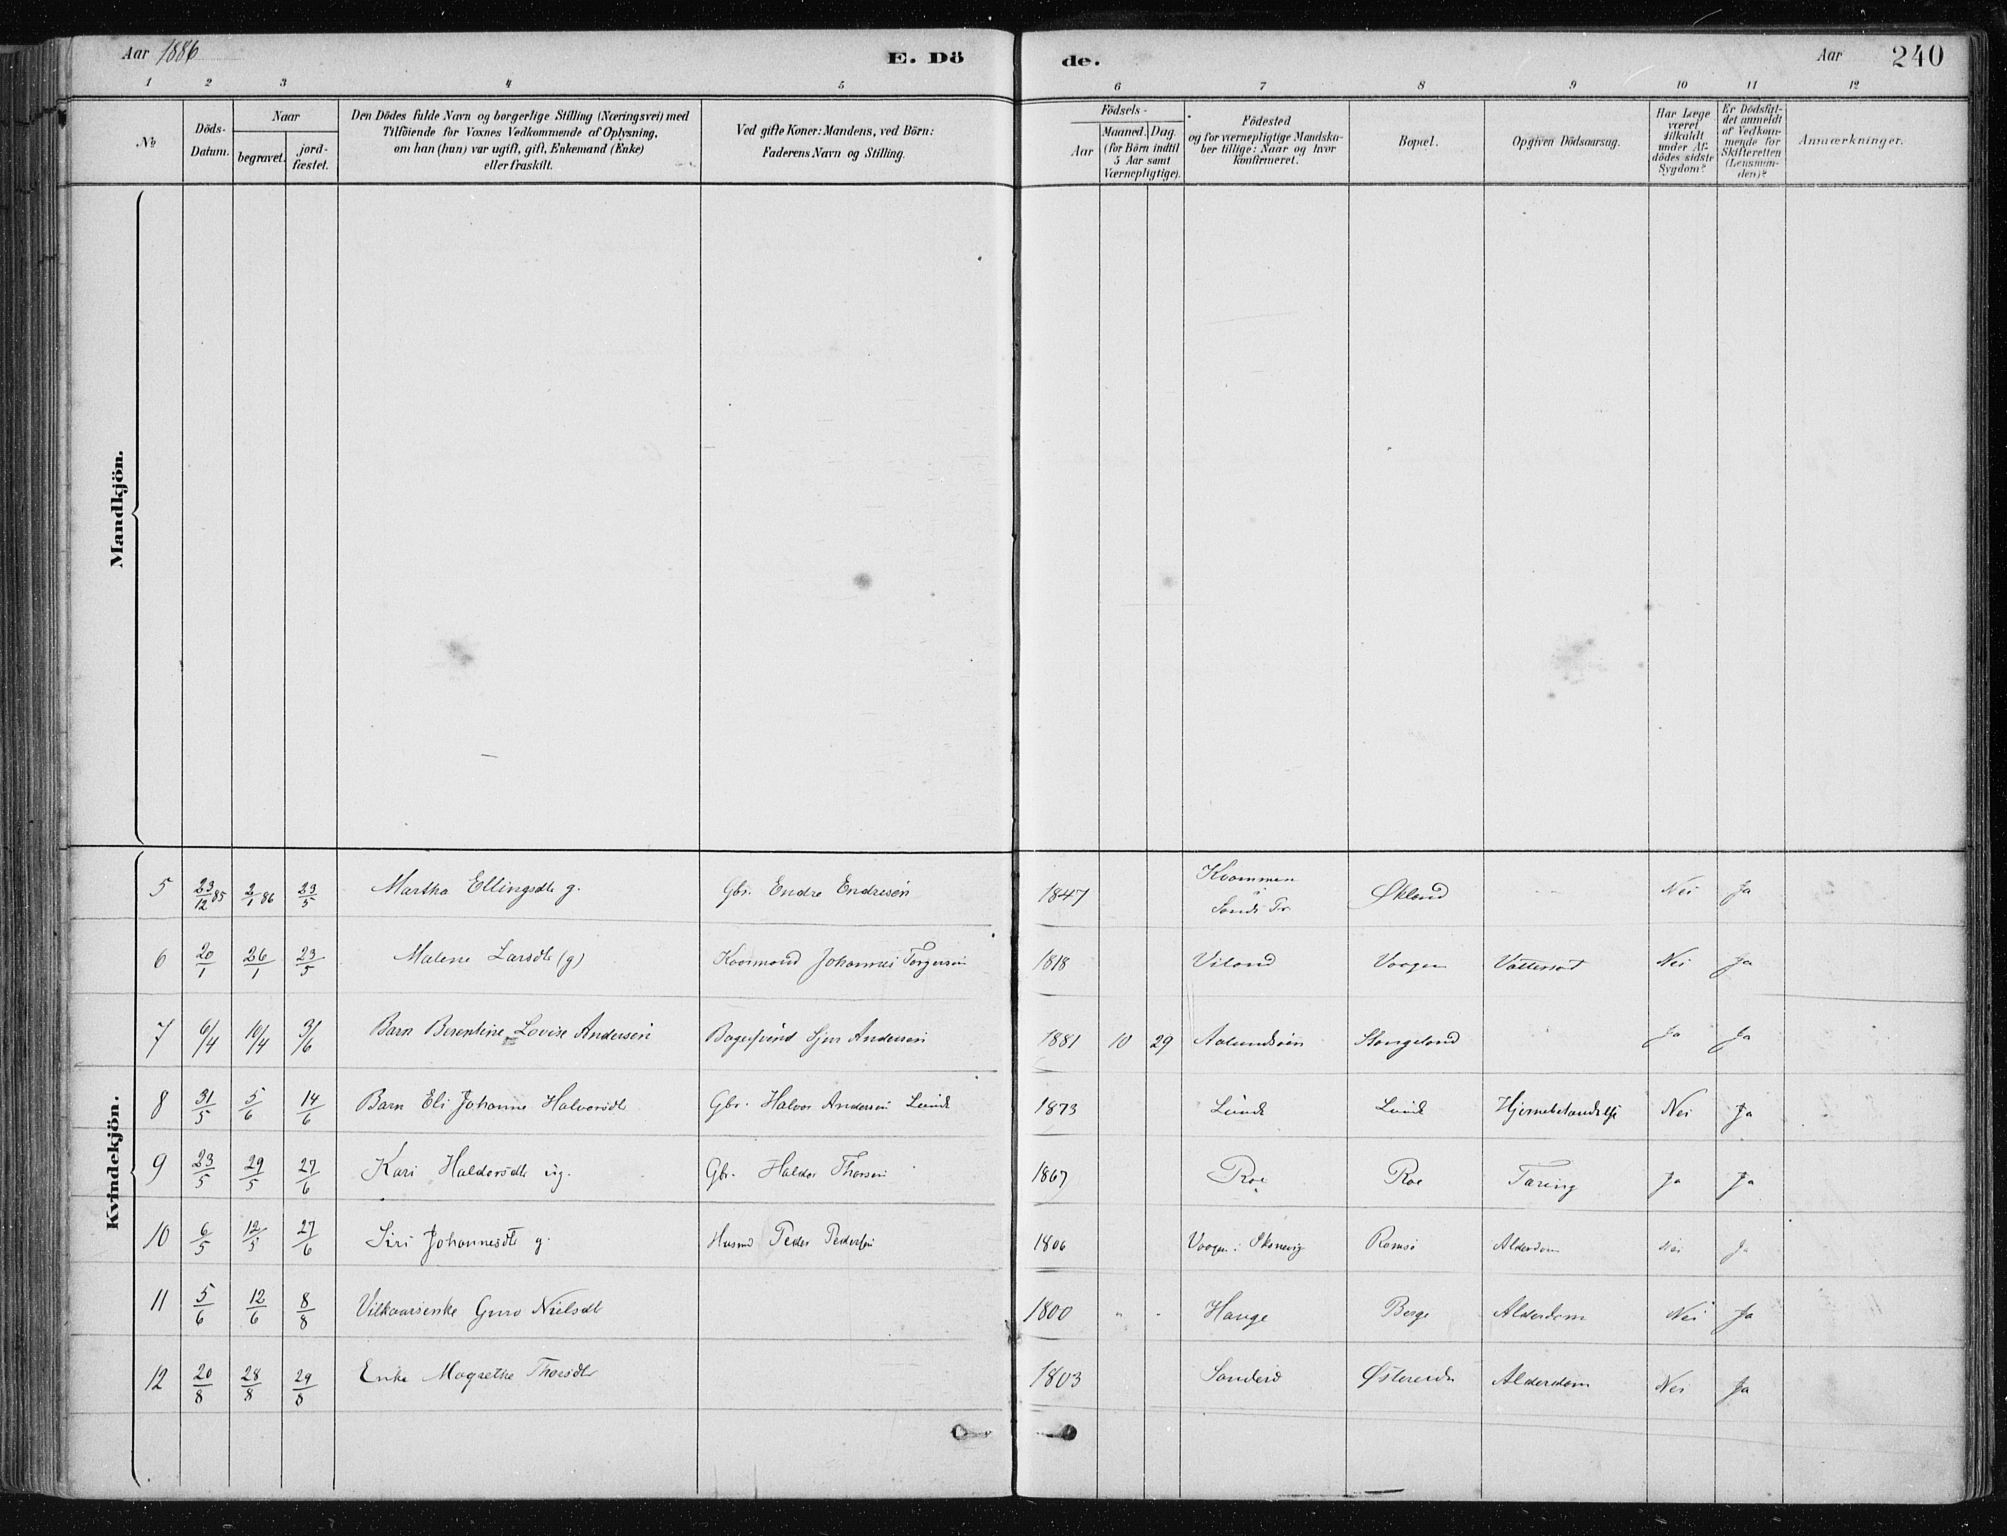 Aar 1886 E. Dö de. Aar 240
1 2 3 4 5 6 7 8 9 10 11 12
No
Döds-
Datum.
Naar
begravet.
jord-
fæstet.
Den Dödes fulde Navn og borgerlige Stilling (Næringsvei) med
Tilföiende for Voxnes Vedkommende af Oplysning,
om han (hun) var ugift, gift, Enkemand (Enke)
eller fraskilt.
Ved gifte Koner: Mandens, ved Börn:
Faderens Navn og Stilling.
Födsels-
Aar
Maaned. Dag.
(for Börn indtil
5 Aar samt
Værnepligtige).
Födested
og for værnepligtige Mandska-
ber tillige: Naar og hvor
konfirmeret.
Bopæl.
Opgiven Dödsaarsag.
Har Læge
været
tilkaldt
under Af-
dödes sidste
Sygdom?
Er Dödsfal-
det anmeldt
af Vedkom-
mende for
Skifteretten
(Lensman-
den)?
Anmærkninger.
Mandkjön.
Kvindekjön.
5 23/12 85 2/1 86 23/5 Martha Ellingsdt g. Gbr. Endre Endresen 1847 Kvammen i Økland Nei Ja
6 20/1 26/1 23/5 Malene Larsdt (g) Kaarmand Johannes Torgersen 1818 Viland Vaagen Vattersot Nei Ja
7 6/4 10/4 3/6 Barn Berentine Lovise Andersen Sjur Andersen 1881 10 29 Stangeland Ja Ja
8 31/5 5/6 14/6 Barn Eli Johanne Halvorsdt Gbr. Halvor Andersen Lunde 1873 Lunde Lunde Hjernebetændelse Nei Ja
9 23/5 29/5 27/6 Kari Haldorsdt ug. Gbr. Haldor Thorsen 1867 Roe Roe Tæring Ja Ja
10 6/5 12/5 27/6 Siri Johannesdt g. Husmd Peder Pedersen 1806 Vaagen i Skonevig Romsø Alderdom Nei Ja
11 5/6 12/6 8/8 Vilkaarsenke Guro Nielsdt 1800 " - Hauge Berge Alderdom Nei Ja
12 20/8 28/8 29/8 Enke Magrethe Thorsdt 1803 Østereide Alderdom Nei Ja